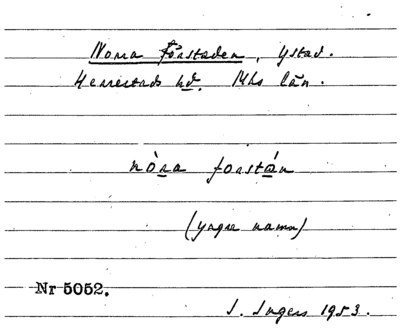 Norra Förstaden, Ystad.
Herrestads hd. Mhs län.
nòra forstán
(yngre namn)
Nr 5052.
I. Ingers 1953.